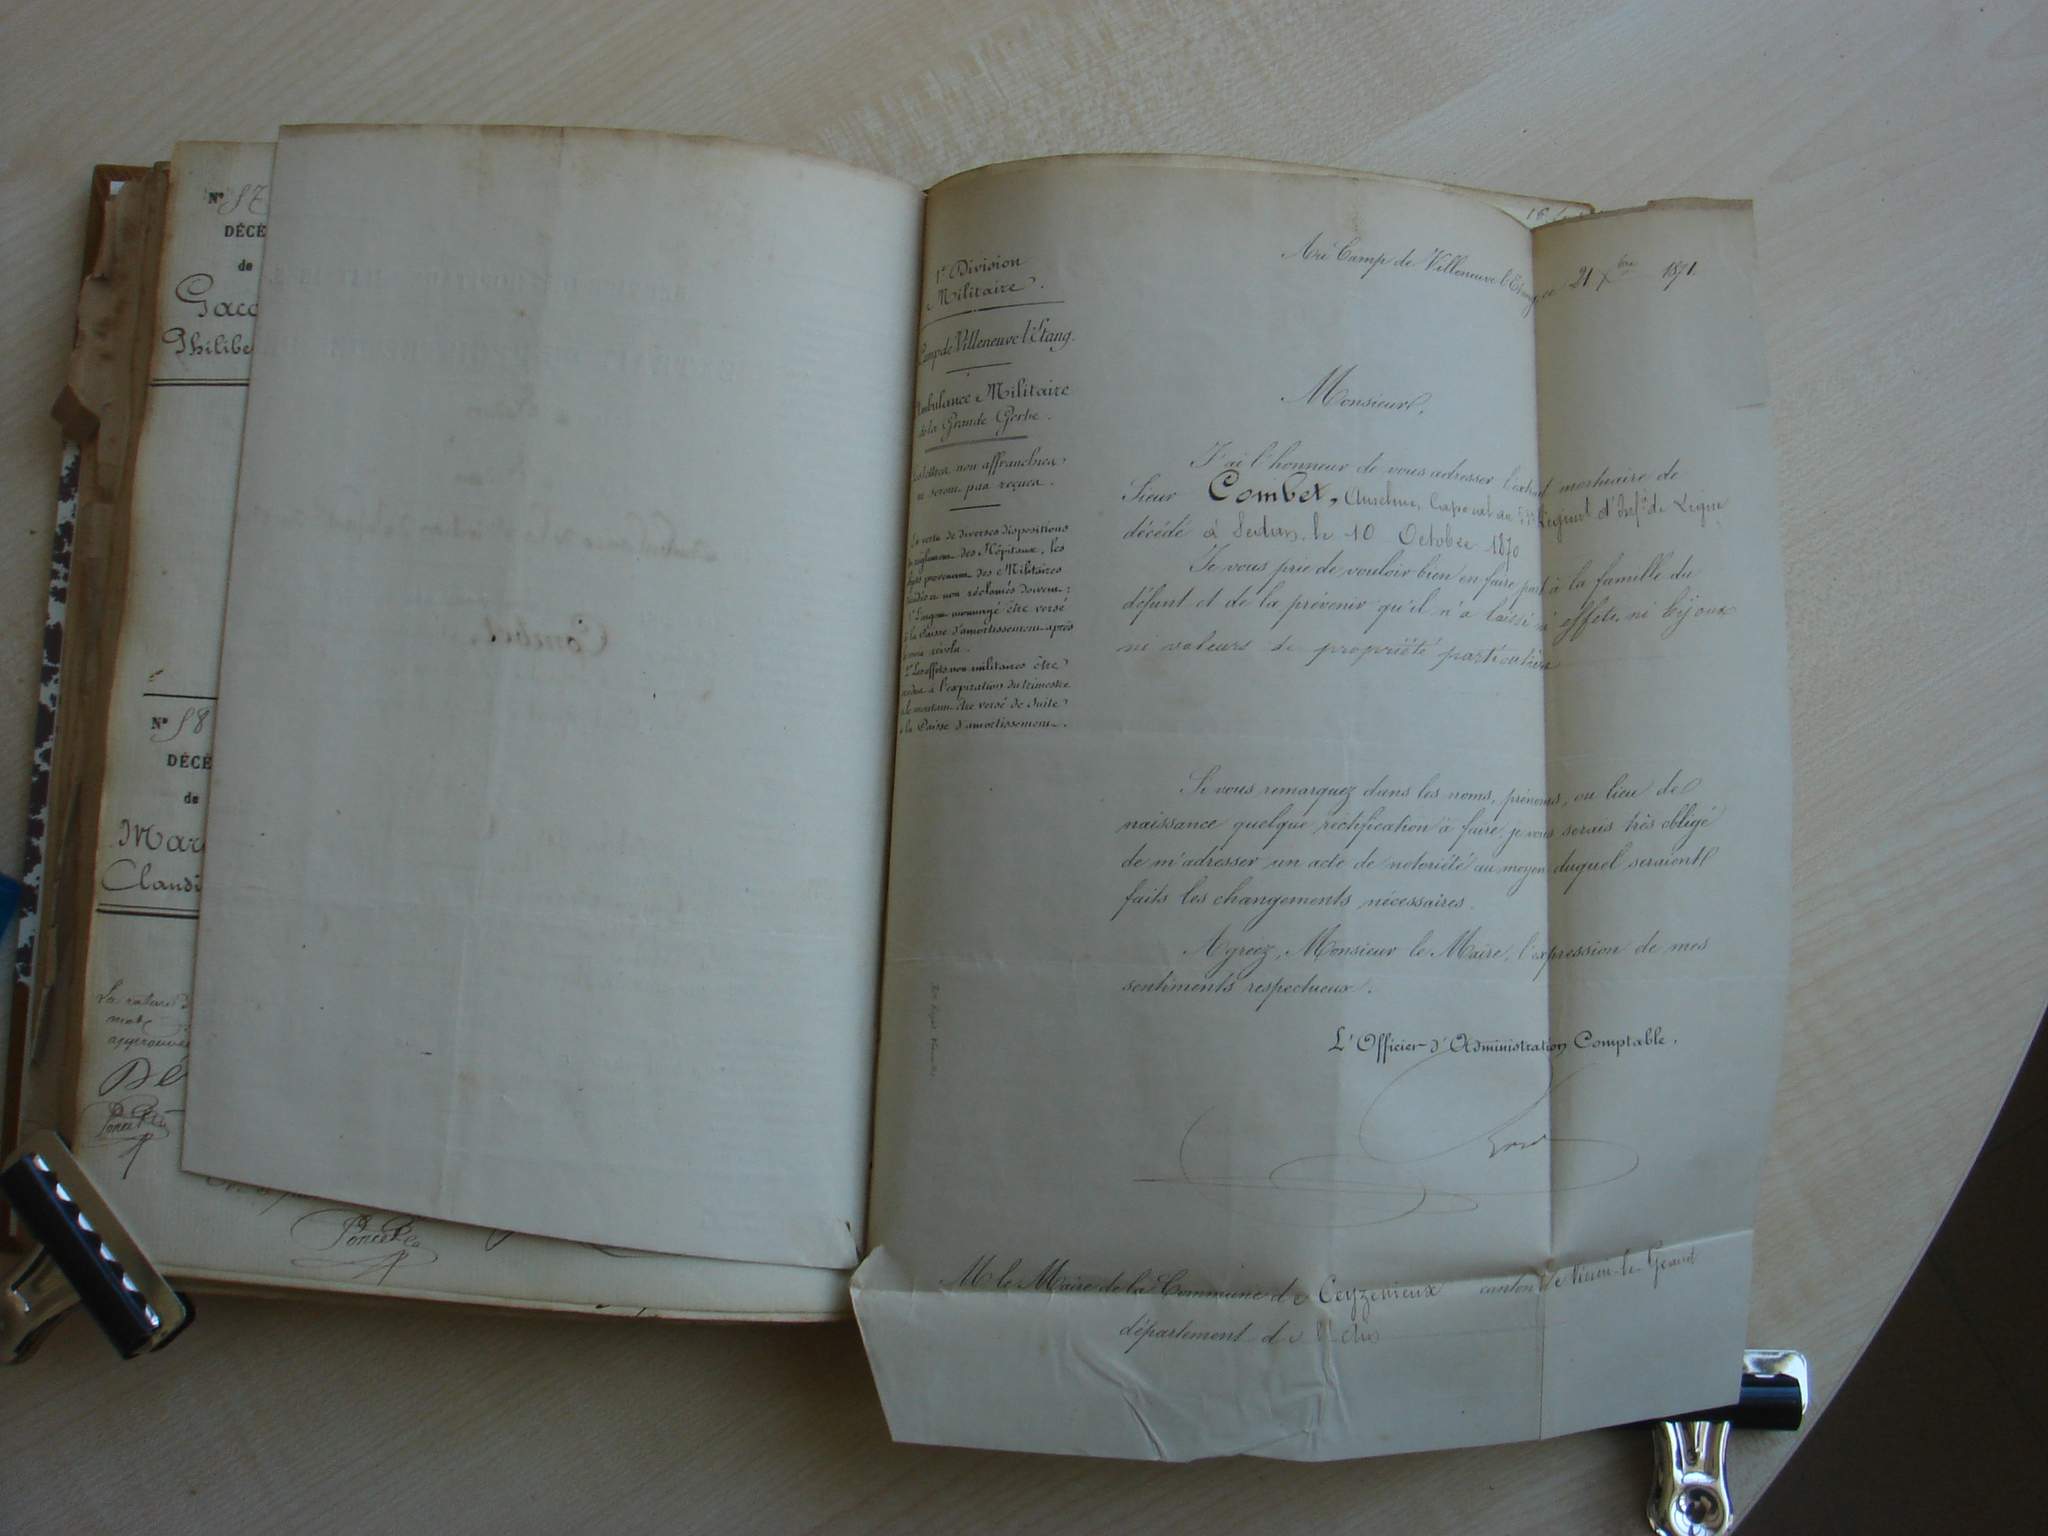 Nº 57
DÉCÉ
de
Gacc
Philibe
Nº 58
DÉCÉ
de
Mar
Claudi
La rature d
mots
approuvée
Dé
Poncet
Poncet
Combet
1re Division
Militaire.
Camp de Villeneuve l'Étang.
Ambulance Militaire
de la Grande Gerbe.
Les lettres non affranchies
ne seront pas reçues.
En vertu de diverses dispositions
du règlement des Hôpitaux, les
objets provenant des Militaires
décédés non réclamés doivent:
1º L'argent monnayé être versé
à la Caisse d'amortissement après
révolu.
2º Les effets non militaires être
vendus à l'expiration du trimestre
et le montant être versé de suite
à la Caisse d'amortissement.
Au Camp de Villeneuve l'Étang, ce 21 Xbre 1871.
Monsieur,
J'ai l'honneur de vous adresser l'extrait mortuaire de
Sieur Combet, Anselme, Caporal au Régimt d'Infie de Ligne
décédé à Sedan, le 10 Octobre 1870
Je vous prie de vouloir bien en faire part à la famille du
défunt et de la prévenir qu'il n'a laissé ni effets, ni bijoux
ni valeurs de propriété particulière
Si vous remarquez dans les noms, prénoms, ou lieu de
naissance quelque rectification à faire, je vous serais très obligé
de m'adresser un acte de notoriété au moyen duquel seraient
faits les changements nécessaires.
Agréez, Monsieur le Maire, l'expression de mes
sentiments respectueux.
L'Officier d'Administration Comptable,
M. le Maire de la Commune de Ceyzerieux canton de Virieu-le-Grand
département de l'Ain